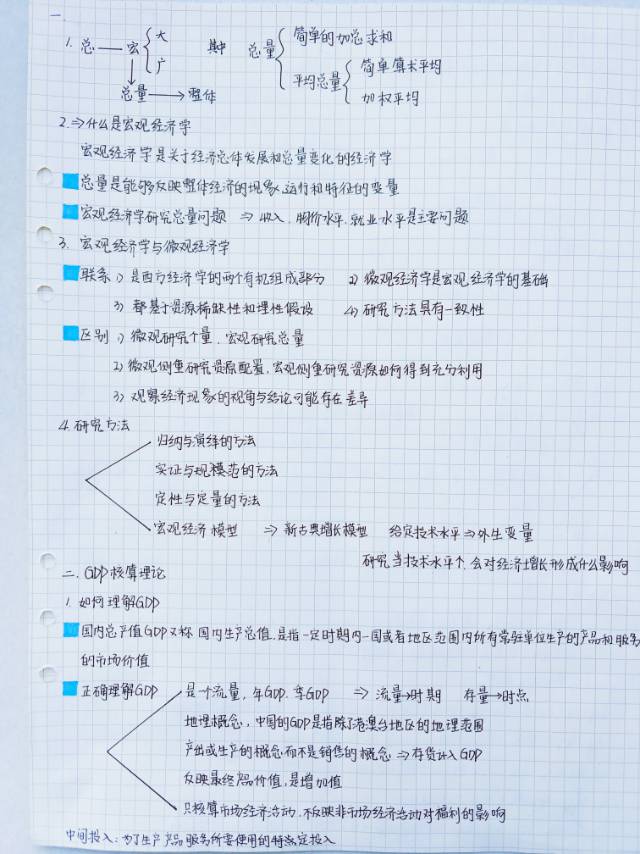 一.
1. 总 — 宏 大 其中 总量 简单的加总求和
广 平均总量 简单算术平均
总量 → 整体 加权平均
2. ⇒什么是宏观经济学
宏观经济学是关于经济总体发展和总量变化的经济学
总量是能够反映整体经济的现象、运行和特征的变量
宏观经济学研究总量问题 ⇒ 收入、物价水平、就业水平是主要问题
3. 宏观经济学与微观经济学
联系 1) 是西方经济学的两个有机组成部分 2) 微观经济学是宏观经济学的基础
3) 都基于资源稀缺性和理性假设 4) 研究方法具有一致性
区别 1) 微观研究个量,宏观研究总量
2) 微观侧重研究资源配置,宏观侧重研究资源如何得到充分利用
3) 观察经济现象的视角与结论可能存在差异
4. 研究方法
归纳与演绎的方法
实证与规范的方法
定性与定量的方法
宏观经济模型 ⇒ 新古典增长模型 给定技术水平⇒外生变量
研究当技术水平↑,会对经济增长形成什么影响
二. GDP核算理论
1. 如何理解GDP
国内总产值GDP又称国内生产总值,是指一定时期内一国或者地区范围内所有常驻单位生产的产品和服务
的市场价值
正确理解GDP 是一个流量,年GDP、季GDP ⇒ 流量→时期 存量→时点
地理概念,中国的GDP是指除了港澳台地区的地理范围
产出或生产的概念而不是销售的概念 ⇒ 存货计入GDP
反映最终产品价值,是增加值
只核算市场经济活动,不反映非市场经济活动对福利的影响
中间投入:为了生产产品服务所需使用的特点定投入